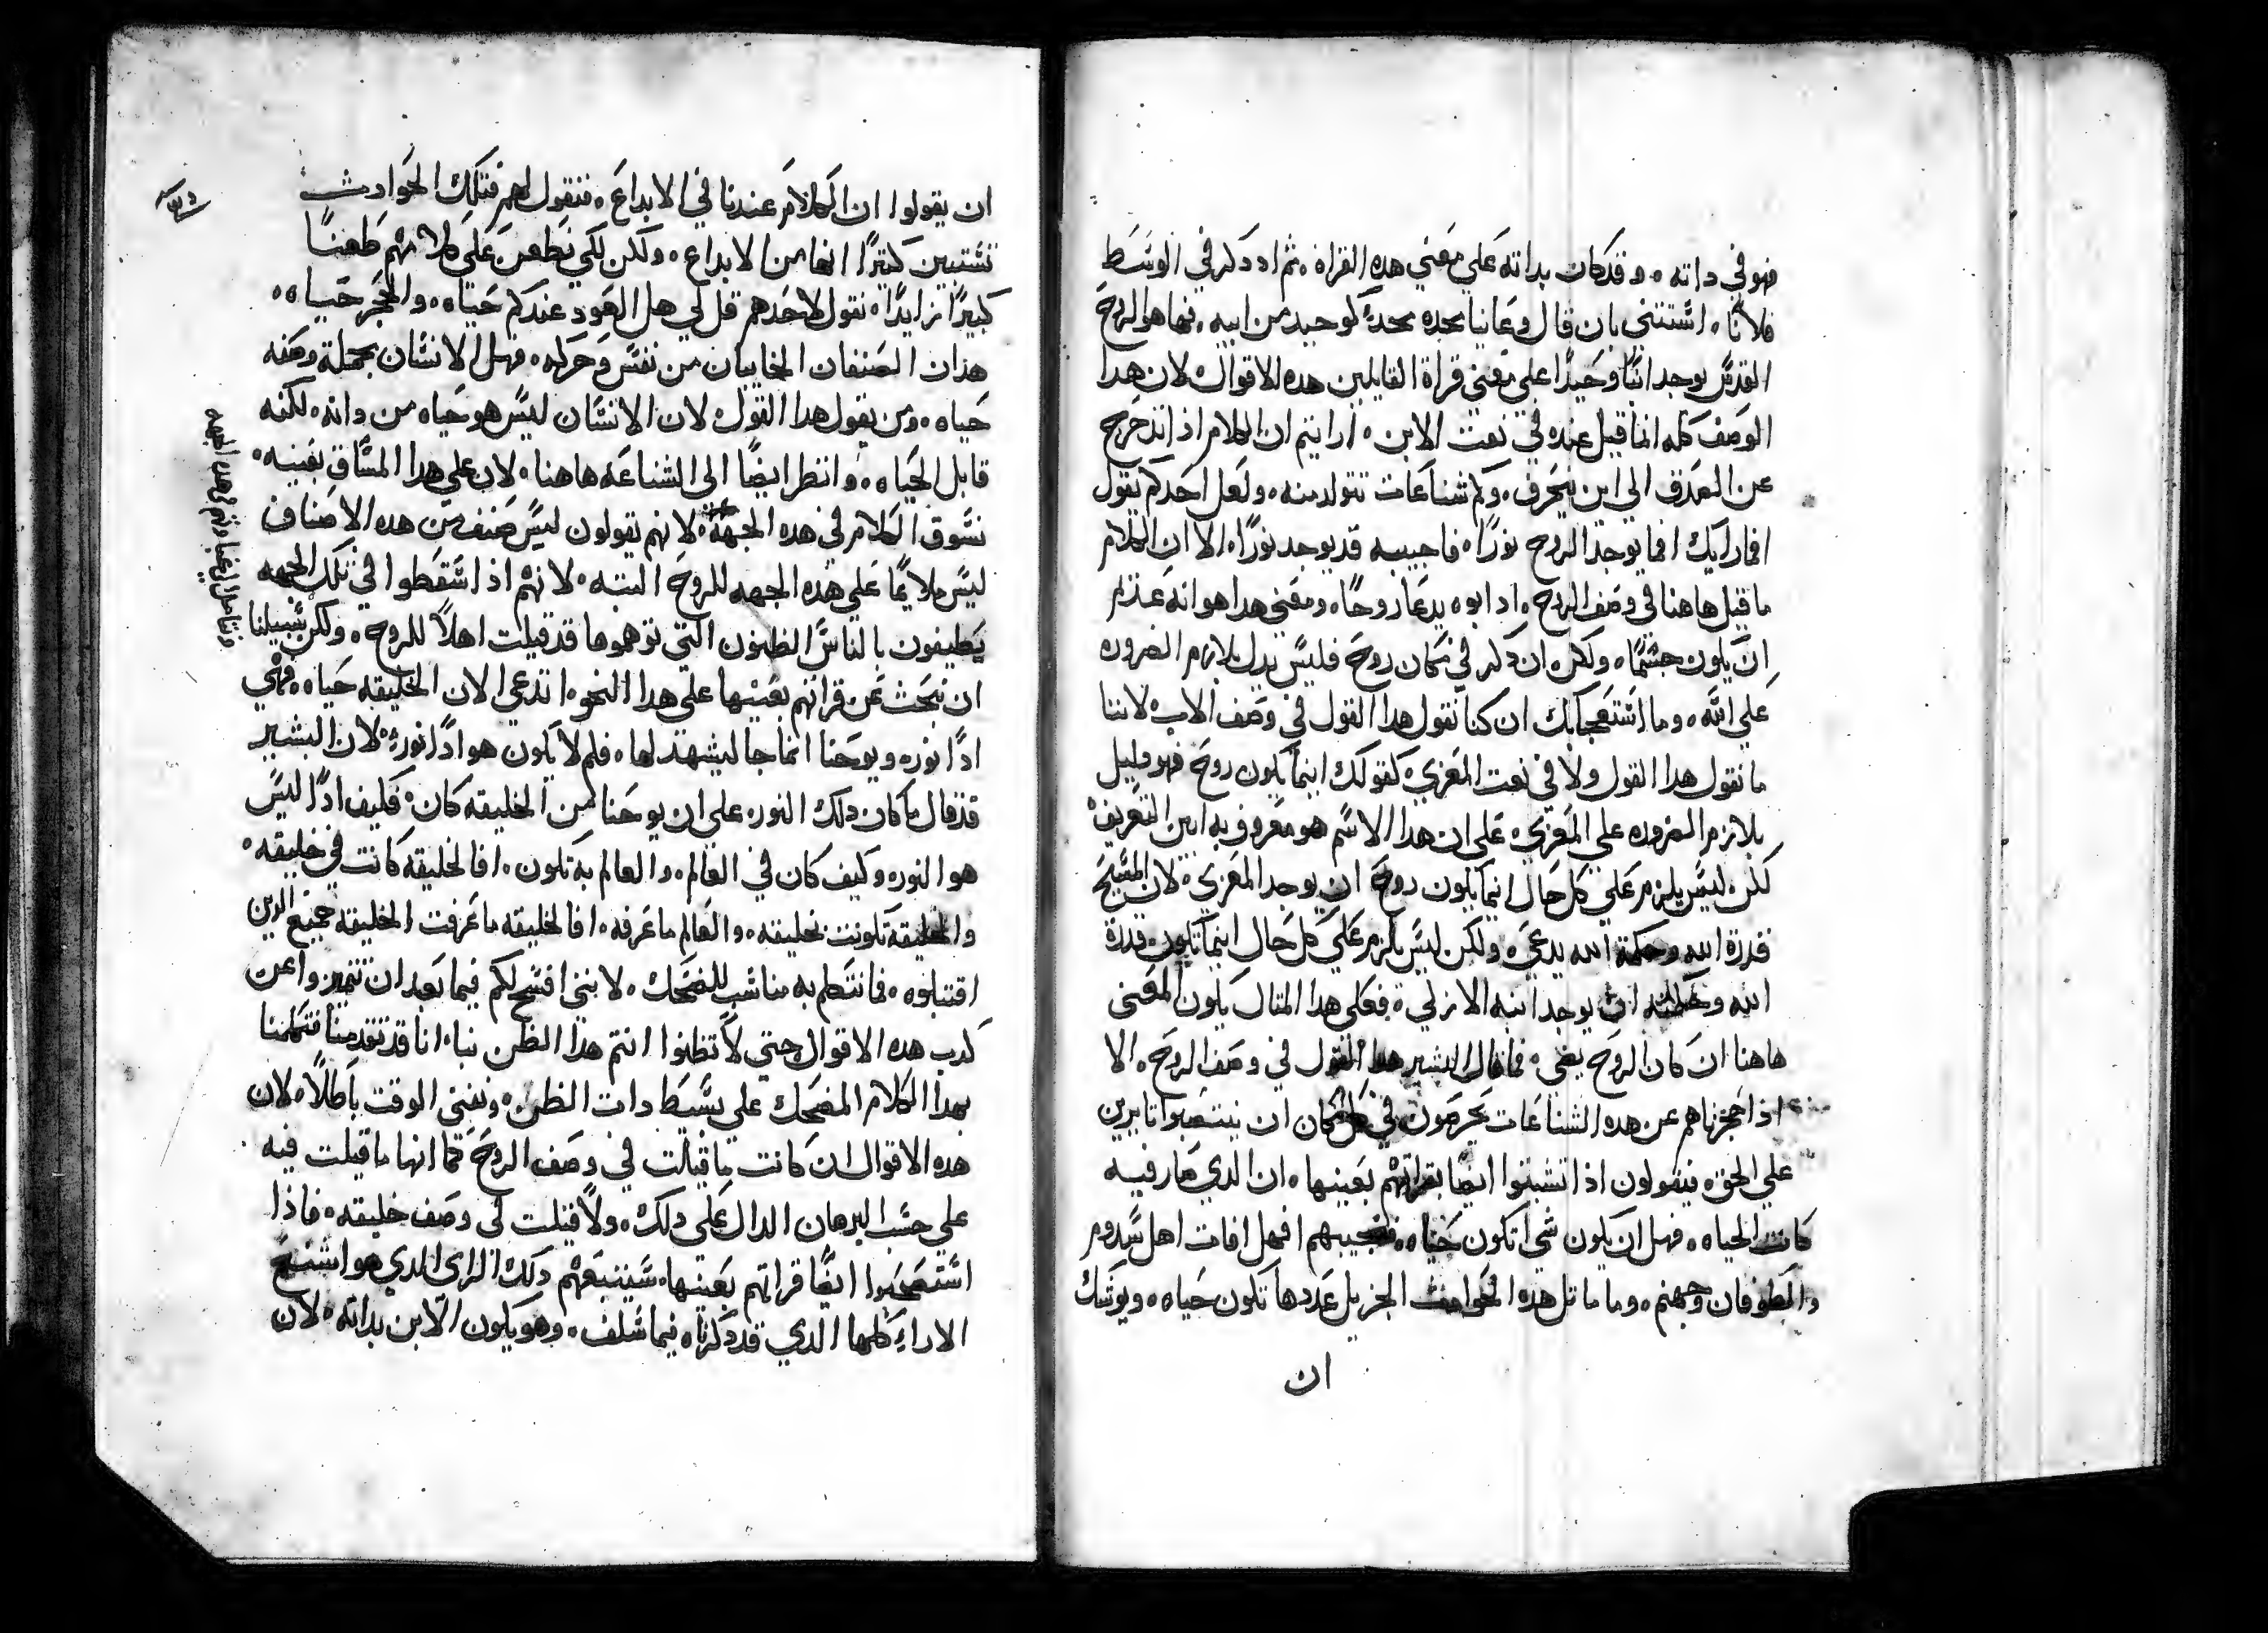 فهو في داته ٠ وقد كان بداته علي معني هده القراه ٠ ثم اد دكر في الوسط
فلانا ٠ استتني بان قال وعاينا مجده مجدًا كوحيد من ابيه ٠ فها هو الروح
القدس يوجد ابنًا وحيدًا علي معني قراة القايلين هده الاقوال لان هدا
الوصف كله انما قيل عنده في نعت الابن ٠ ارايتم ان الكلام اذ اتد حرج
عن الصدق الي اين ينحرف ٠ وكم شناعات تتولد منه ٠ ولعل احدكم يقول
افما رايك افما يوجد الروح نورًا ٠ فاجيبه قد يوجد نورًا ٠ الا ان الكلام
ما قيل هاهنا في وصف الروح ٠ اد ابوه يدعا روحًا ٠ ومعني هدا هو انه عدم
ان يكون جسمًا ٠ ولكن ان دكر في مكان روح فليس يدل بلازم الضروره
علي الله ٠ وما استعجابك ان كنا نقول هدا القول في وصف الاب لاننا
ما نقول هدا القول ولا في نعت المعزي ٠ كقولك اينما يكون روح فهو دليل
بلازم الضروره علي المعزي ٠ علي ان هدا الاسم هو معروف به ابين التعريف
لكن ليس يلزم علي كل حال اينما يكون روح ان يوجد المعزي ٠ لان المسيح
قدرة الله وحكمة الله يدعي ٠ ولكن ليس يلزم علي كل حال اينما تكون قدرة
الله وحكمته ان يوجد ابنه الازلي ٠ فعلي هدا المتال يكون المعني
هاهنا ان كان الروح يضي ٠ فما قال البشير هدا القول في وصف الروح ٠ الا
اذا حجزناهم عن هده الشناعات يحرصون في كل مكان ان ينتصبوا تايرين
علي الحق ٠ فيقولون اذا تشبتوا ايضا بقراتهم بعينها ٠ ان الدي صار فيه
كانت الحياه ٠ فهل ان يكون شي اتكون حياه ٠ فنجيبهم افهل افات اهل سدوم
والطوفان وجهنم ٠ وما ماتل هده الحوادث الجزيل عددها تكون حياه ٠ ويوشك
ان
ان يقولوا ان الكلام عندنا في الابداع ٠ فنقول لهم فتلك الحوادث
تستبين كتيرًا انها من الابداع ٠ ولكن لكي نطعن علي كلامهم طعنًا
كبيرًا زايدًا ٠ نقول لاحدهم قل لي هل العود عندكم حياه ٠ والحجر حياه ٠
هذان الصنفان الخايبان من نفس وحركه ٠ فهل الانسان بجملة وصفه
حياه ٠ ومن يقول هدا القول ٠ لان الانسان ليس هو حياه من داته ٠ لكنه
قابل الحياه ٠ وانظر ايضًا الى الشناعه هاهنا ٠ لان علي هدا المساق بعينه ٠
نسوق الكلام في هده الجهة ٠ لانهم يقولون ليس صنف من هده الاصناف
ليس ملايمًا علي هذه الجهه للروح البته ٠ لانهم اذ اسقطوا في تلك الجهه
يضيفون بالناس الظنون التي توهموها قد قيلت اهلاً للروح ٠ ولكن سبيلنا
ان نبحث عن قراتهم بعينها علي هدا النحو ٠ اتدعي الان الخليقه حياه ٠ فهي
ادًا نوره ويوحنا انما جا ليشهد لها ٠ فلم لا يكون هو ادًا نورة ٠ لان البشير
قد قال ما كان دلك النور ٠ علي ان يوحنا من الخليقه كان ٠ فكيف ادًا ليس
هو النور ٠ وكيف كان في العالم ٠ والعالم به تكون ٠ افالخليقه كانت في خليقه ٠
والخليقة تكونت بخليقه ٠ والعالم ما عرفه ٠ افالخليقه ما عرفت الخليقه جميع الدين
اقتبلوه ٠
كدب هده الاقوال حتي لا تظنوا انتم هدا الظن بنا ٠ انا قد تقدمنا فتكلمنا
بهدا الكلام المضحك علي بسيط دات الظن ٠ ونفني الوقت باطلاً ٠ لان
هده الاقوال ان كانت ما قيلت في وصف الروح كما انها ما قيلت فيه
علي حسب البرهان الدال علي دلك ٠ ولا قيلت في وصف خليقه ٠ فاذا
استصحبوا ايضًا قراتهم بعينها ٠ سيتبعهم دلك الراي الدي هو اشنع
الاراء كلها الدي قد دكرناه فيما سلف ٠ وهو يكون الابن بداته ٠ لان